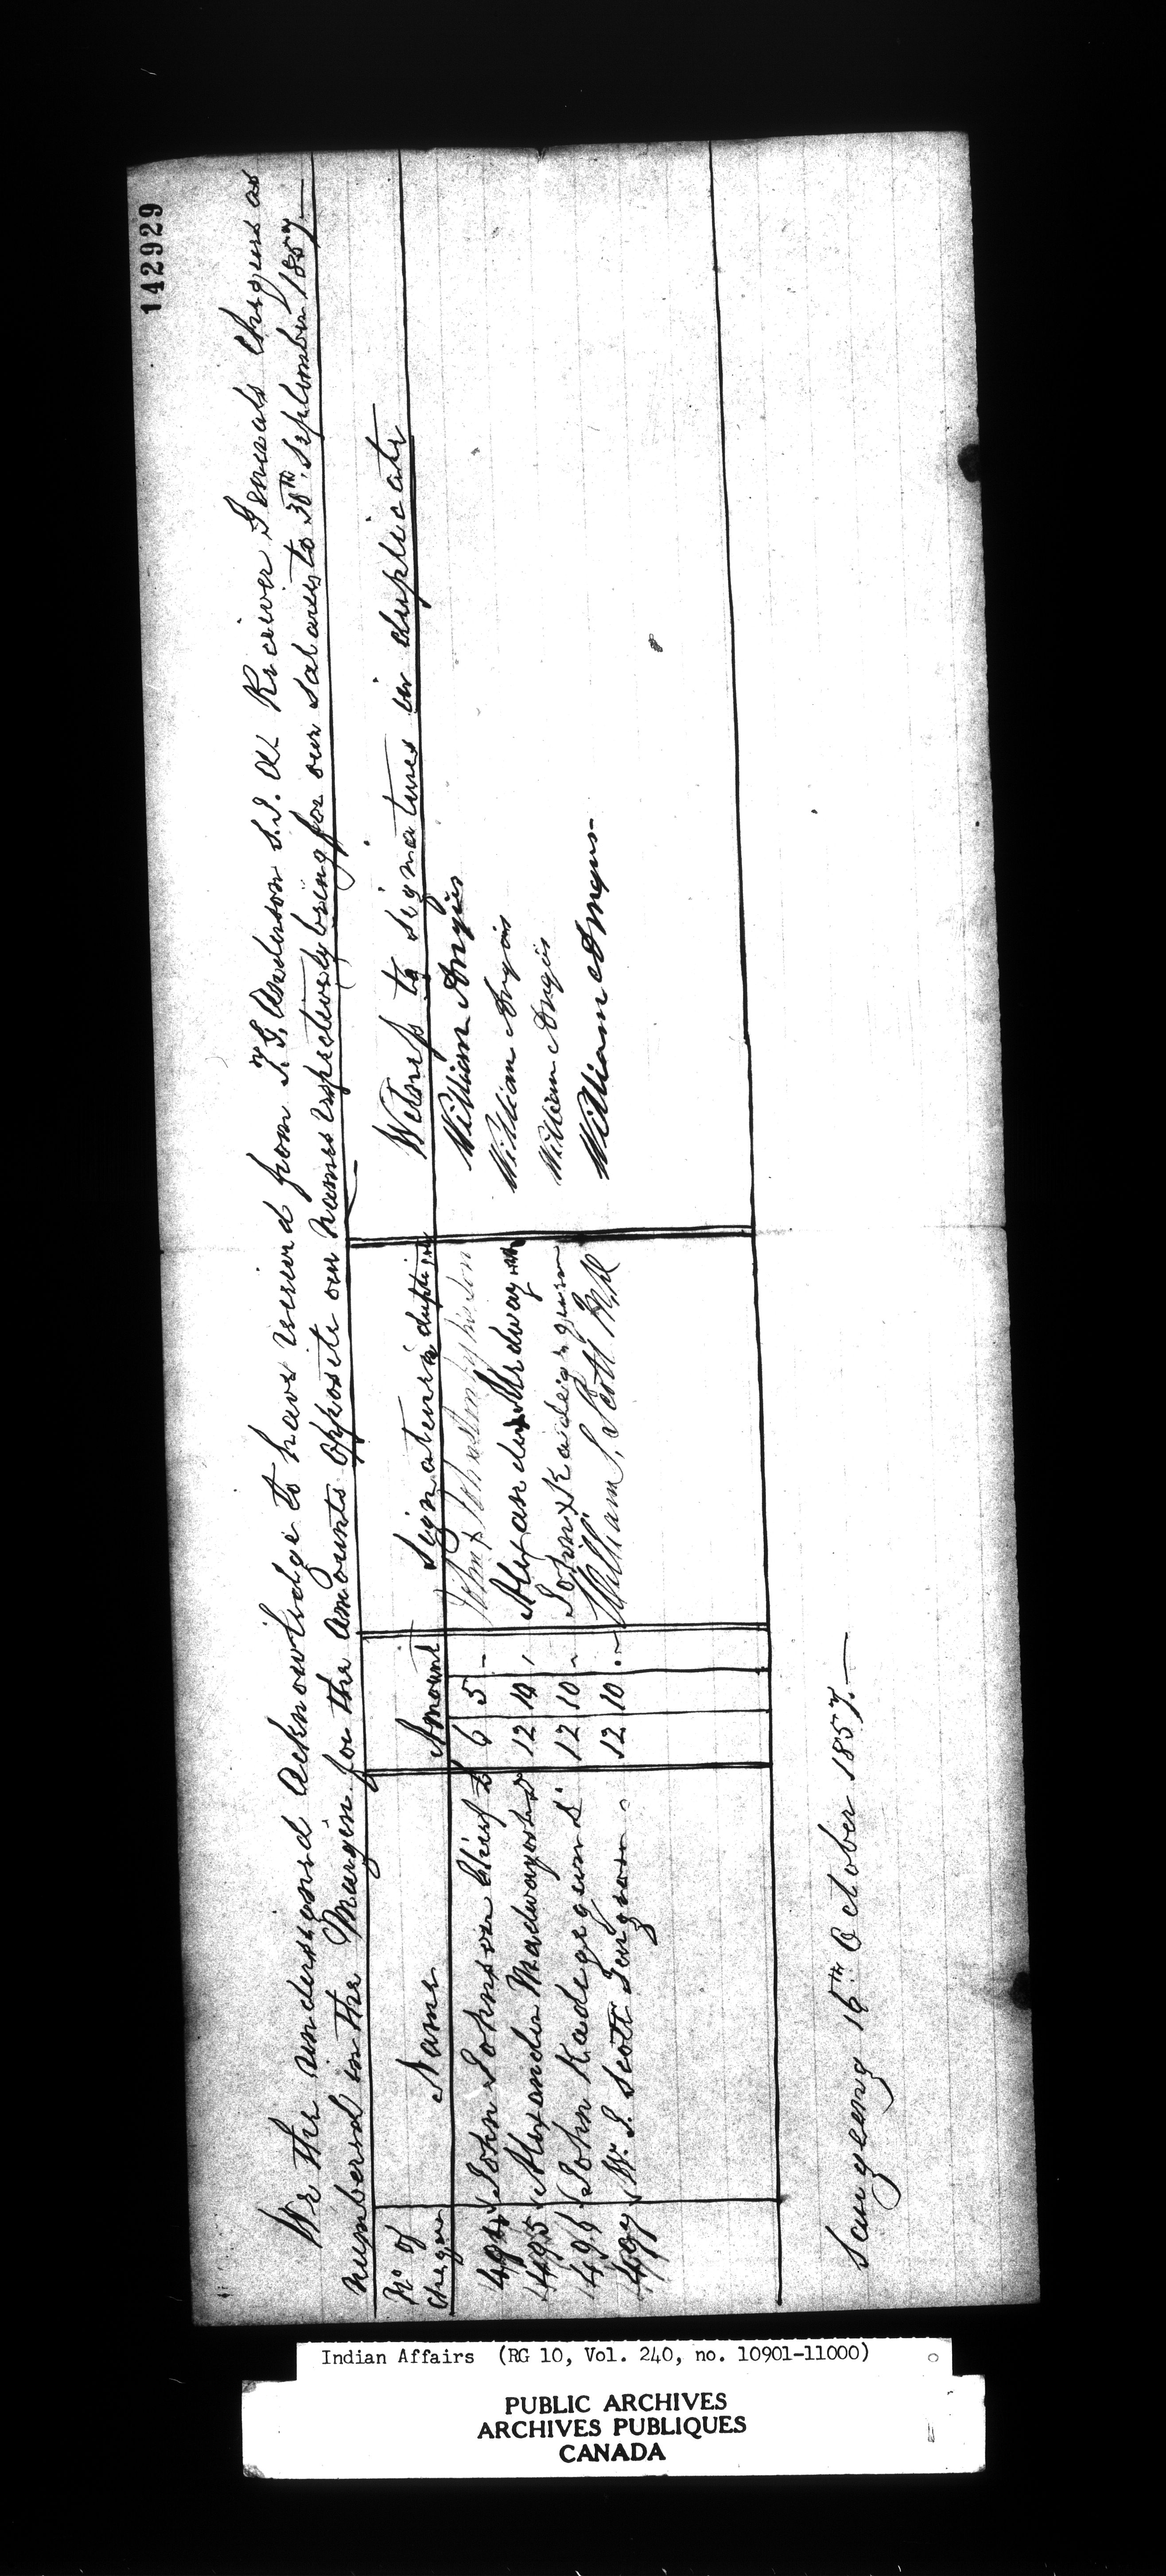 142929
We the undersigned Acknowledge to have received from T. G. Anderson S. I. A. Receiver Generals Cheques as
numbered in the Margin for the amounts opposite our names respectively being for our Salaries to 30th September 1857.—
No of Cheques Name Amount Signatures in duplicate Witness to signatures in duplicate
494 John Johnston Chief £ 6 5 - John X Johnston William Angus
495 Alexander Madwayosh 12 10 , Alexander Madwayosh William Angus
496 John Kadegegwun 12 10 - John X Kadegegwun William Angus
497 W. S. Scott Surgeon 12 10 . - William S. Scott M.D. William Angus-
Saugeeng 16th October 1857.—
Indian Affairs (RG 10, Vol. 240, no. 10901-11000)
PUBLIC ARCHIVES
ARCHIVES PUBLIQUES
CANADA